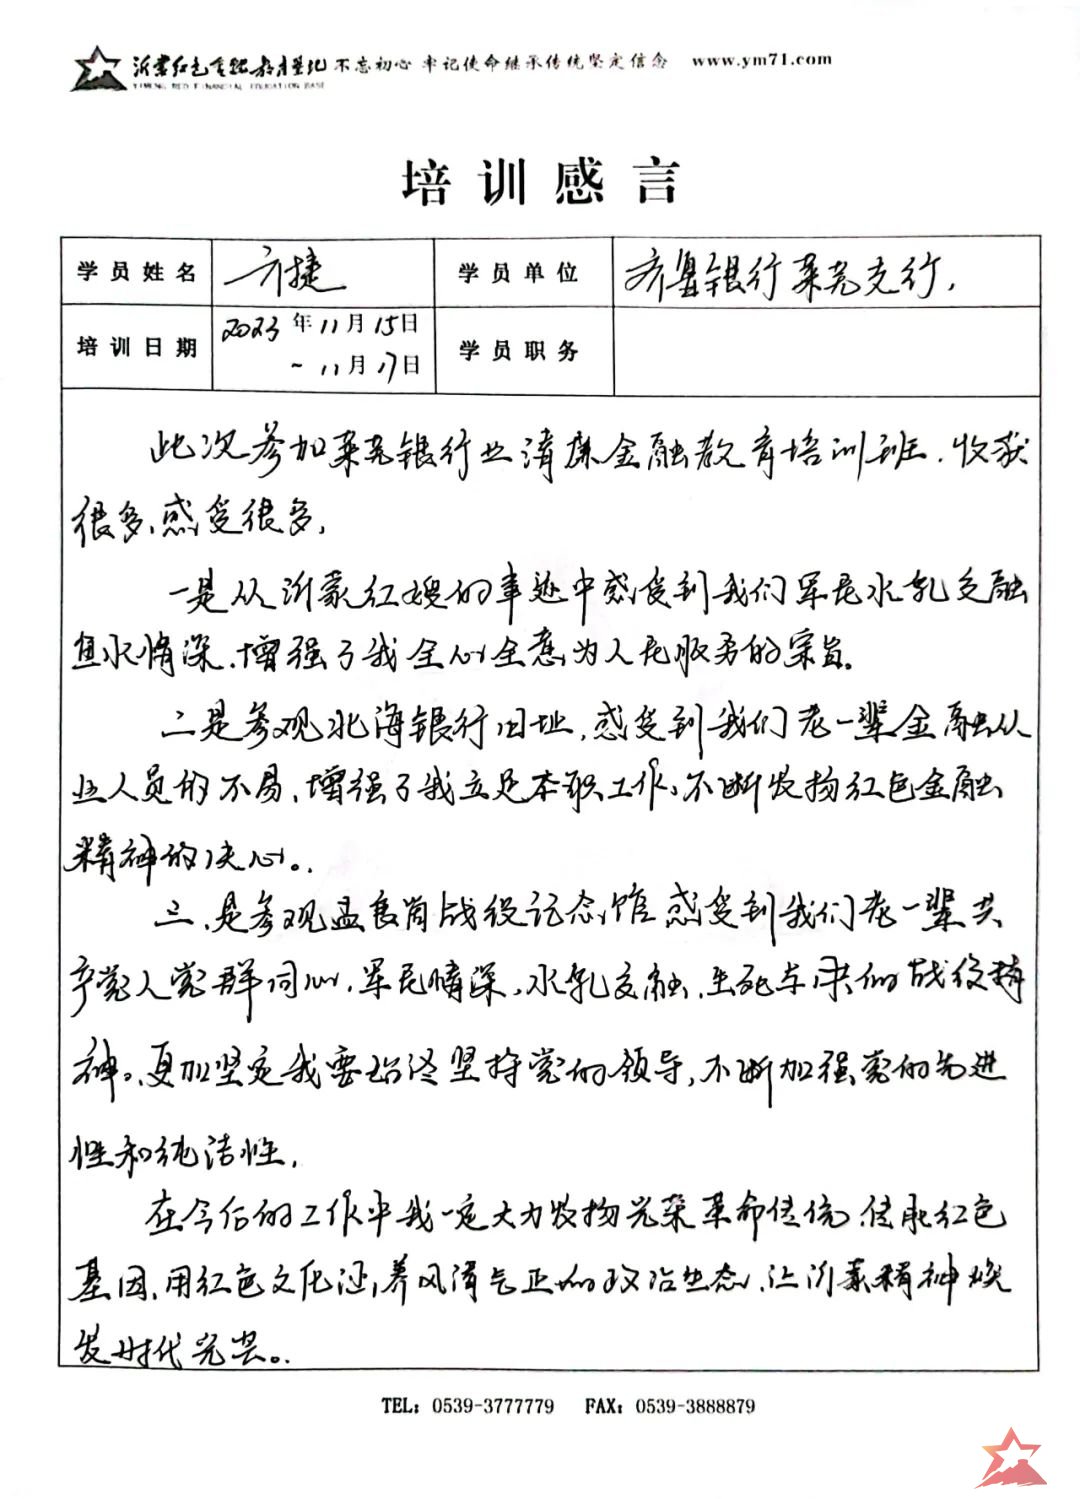 沂蒙红色金融教育基地 不忘初心 牢记使命继承传统坚定信念 www.ym71.com
YIMENG RED FINANCIAL EDUCATION BASE
培训感言
学员姓名 方捷 学员单位 齐鲁银行莱芜支行,
培训日期 2023年11月15日
~11月17日 学员职务
此次参加莱芜银行业清廉金融教育培训班,收获
很多,感受很多,
一是从沂蒙红嫂的事迹中感受到我们军民水乳交融
鱼水情深,增强了我全心全意为人民服务的宗旨。
二是参观北海银行旧址,感受到我们老一辈金融从
业人员的不易,增强了我立足本职工作,不断发扬红色金融
精神的决心。
三、是参观孟良崮战役记念馆感受到我们老一辈共
产党人党群同心,军民情深,水乳交融,生死与共的战役精
神。更加坚定我要始终坚持党的领导,不断加强党的先进
性和纯洁性,
在今后的工作中我一定大力发扬光荣革命传统,传承红色
基因,用红色文化涵养风清气正的政治生态,让沂蒙精神焕
发时代光芒。
TEL: 0539-3777779 FAX: 0539-3888879